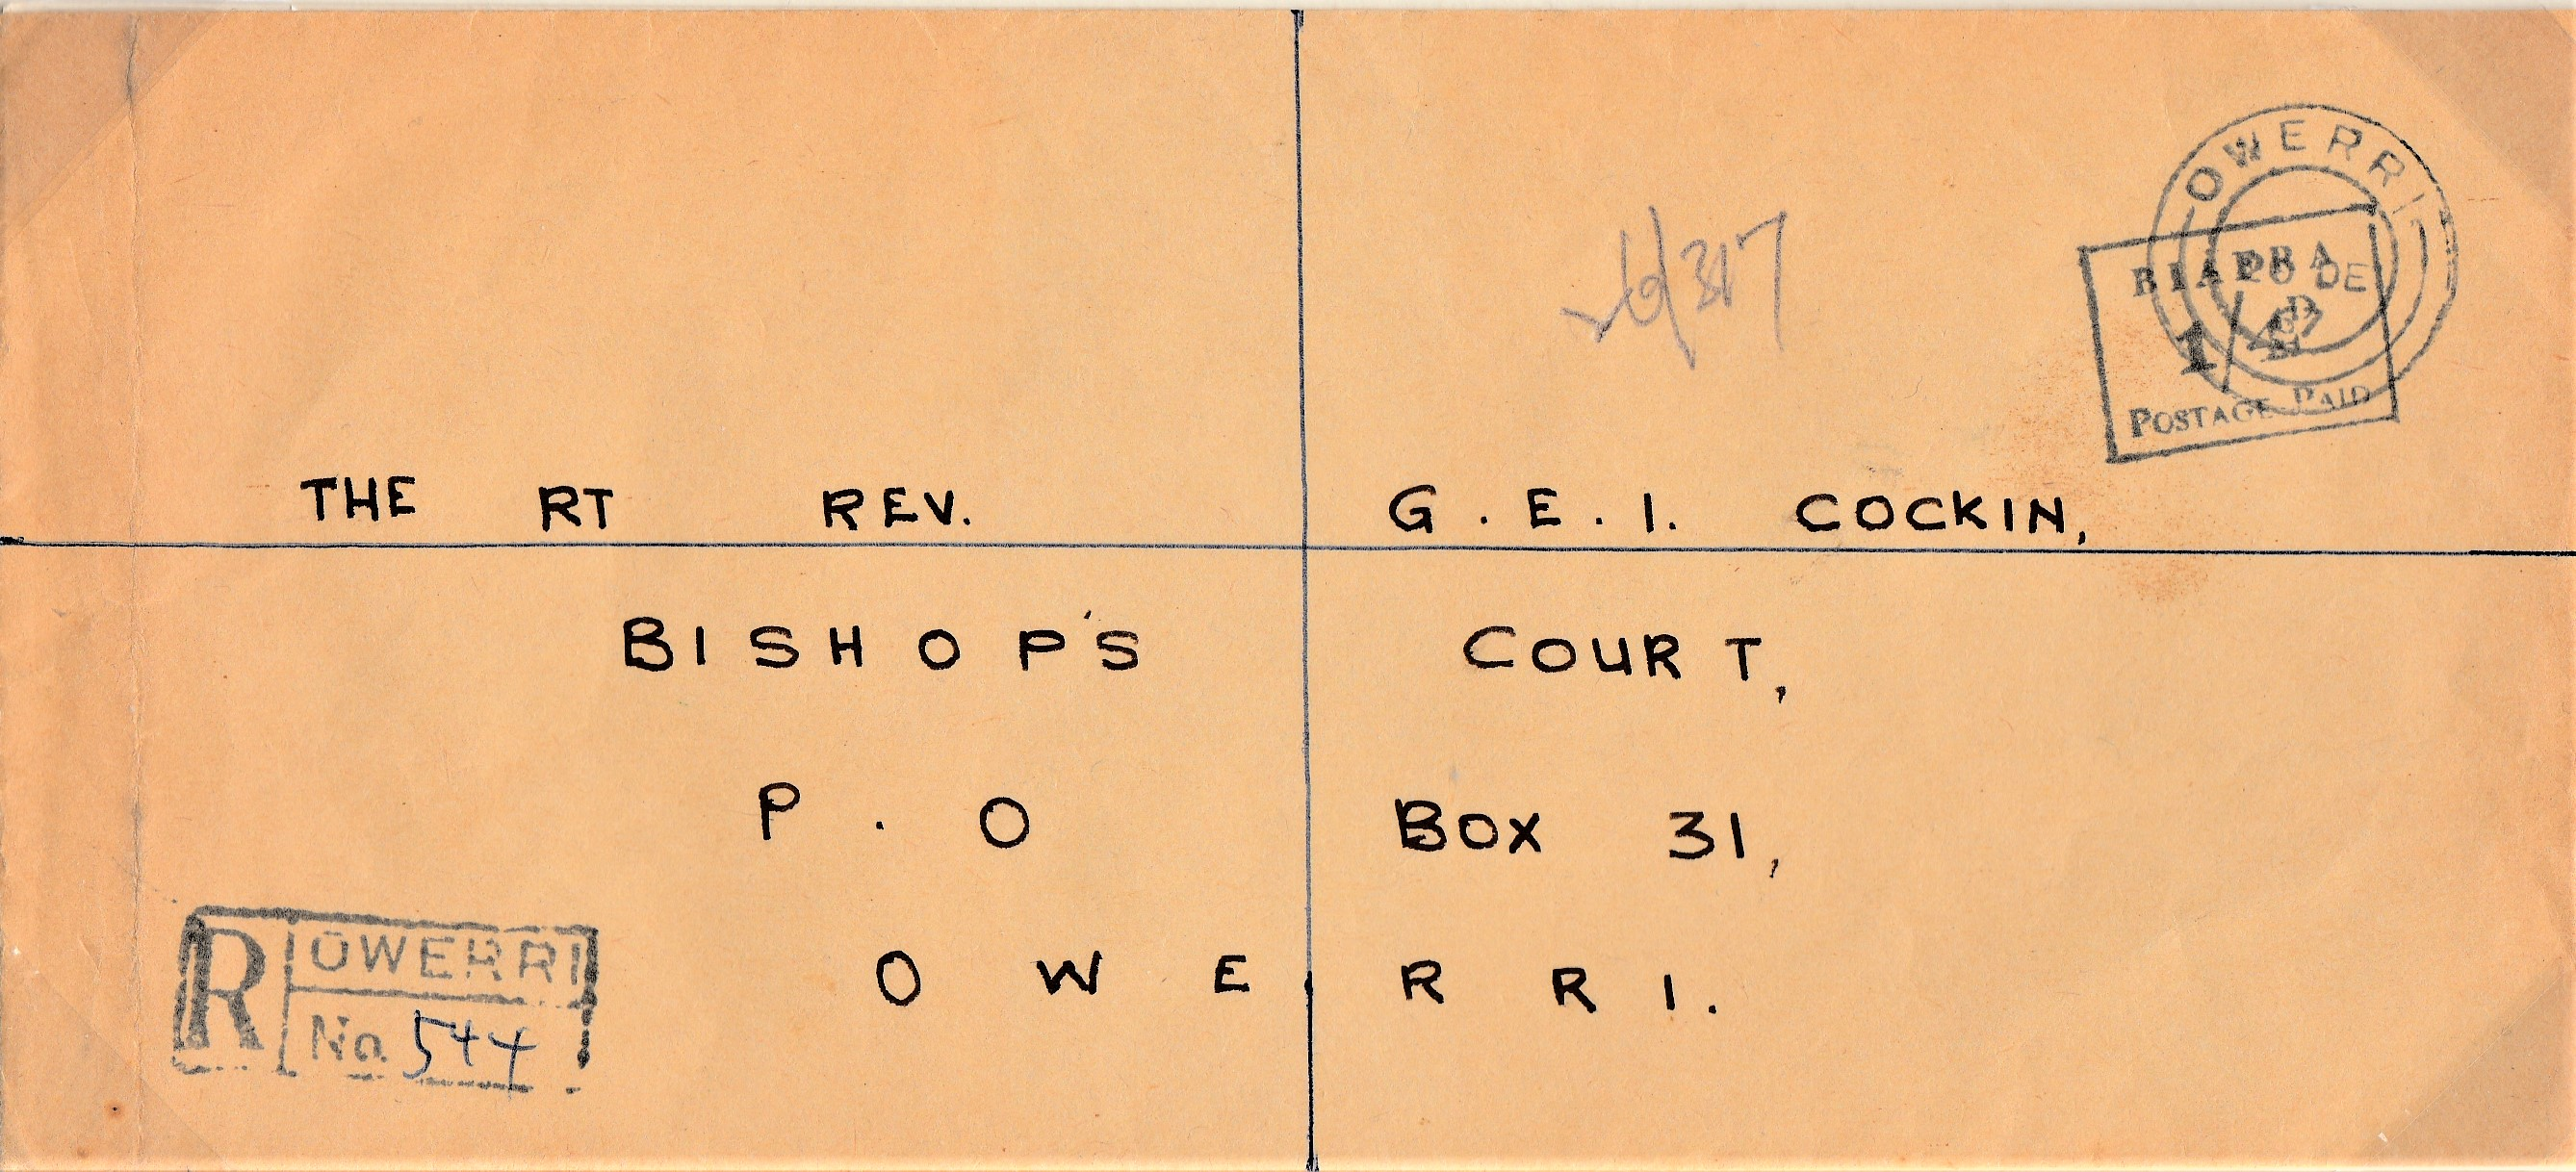 OWERRI
BIAFRA
1/
POSTAGE PAID
THE RT REV. G.E.I. COCKIN,
BISHOP'S COURT,
P.O BOX 31,
OWERRI.
R OWERRI
No. 544